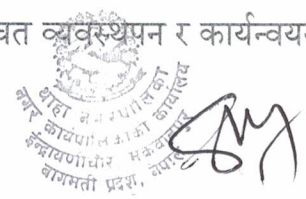 व्यवस्थपन र कार्यन्वयन
थाहा नगरपालिका
नगर कार्यपालिकाको कार्यालय
ईन्द्रायणीचौर मकवानपुर
बागमती प्रदेश, नेपाल